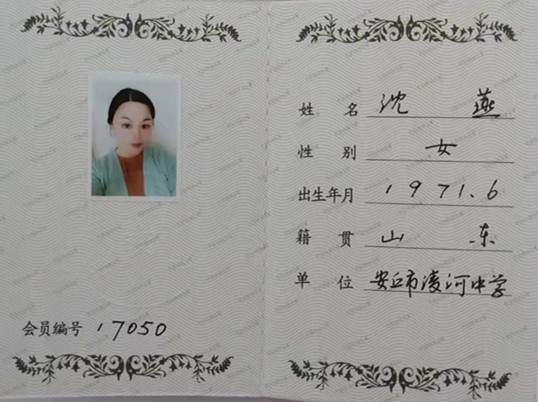 姓名 沈燕
性别 女
出生年月 1971.6
籍贯 山东
单位 安丘市凌河中学
会员编号 17050